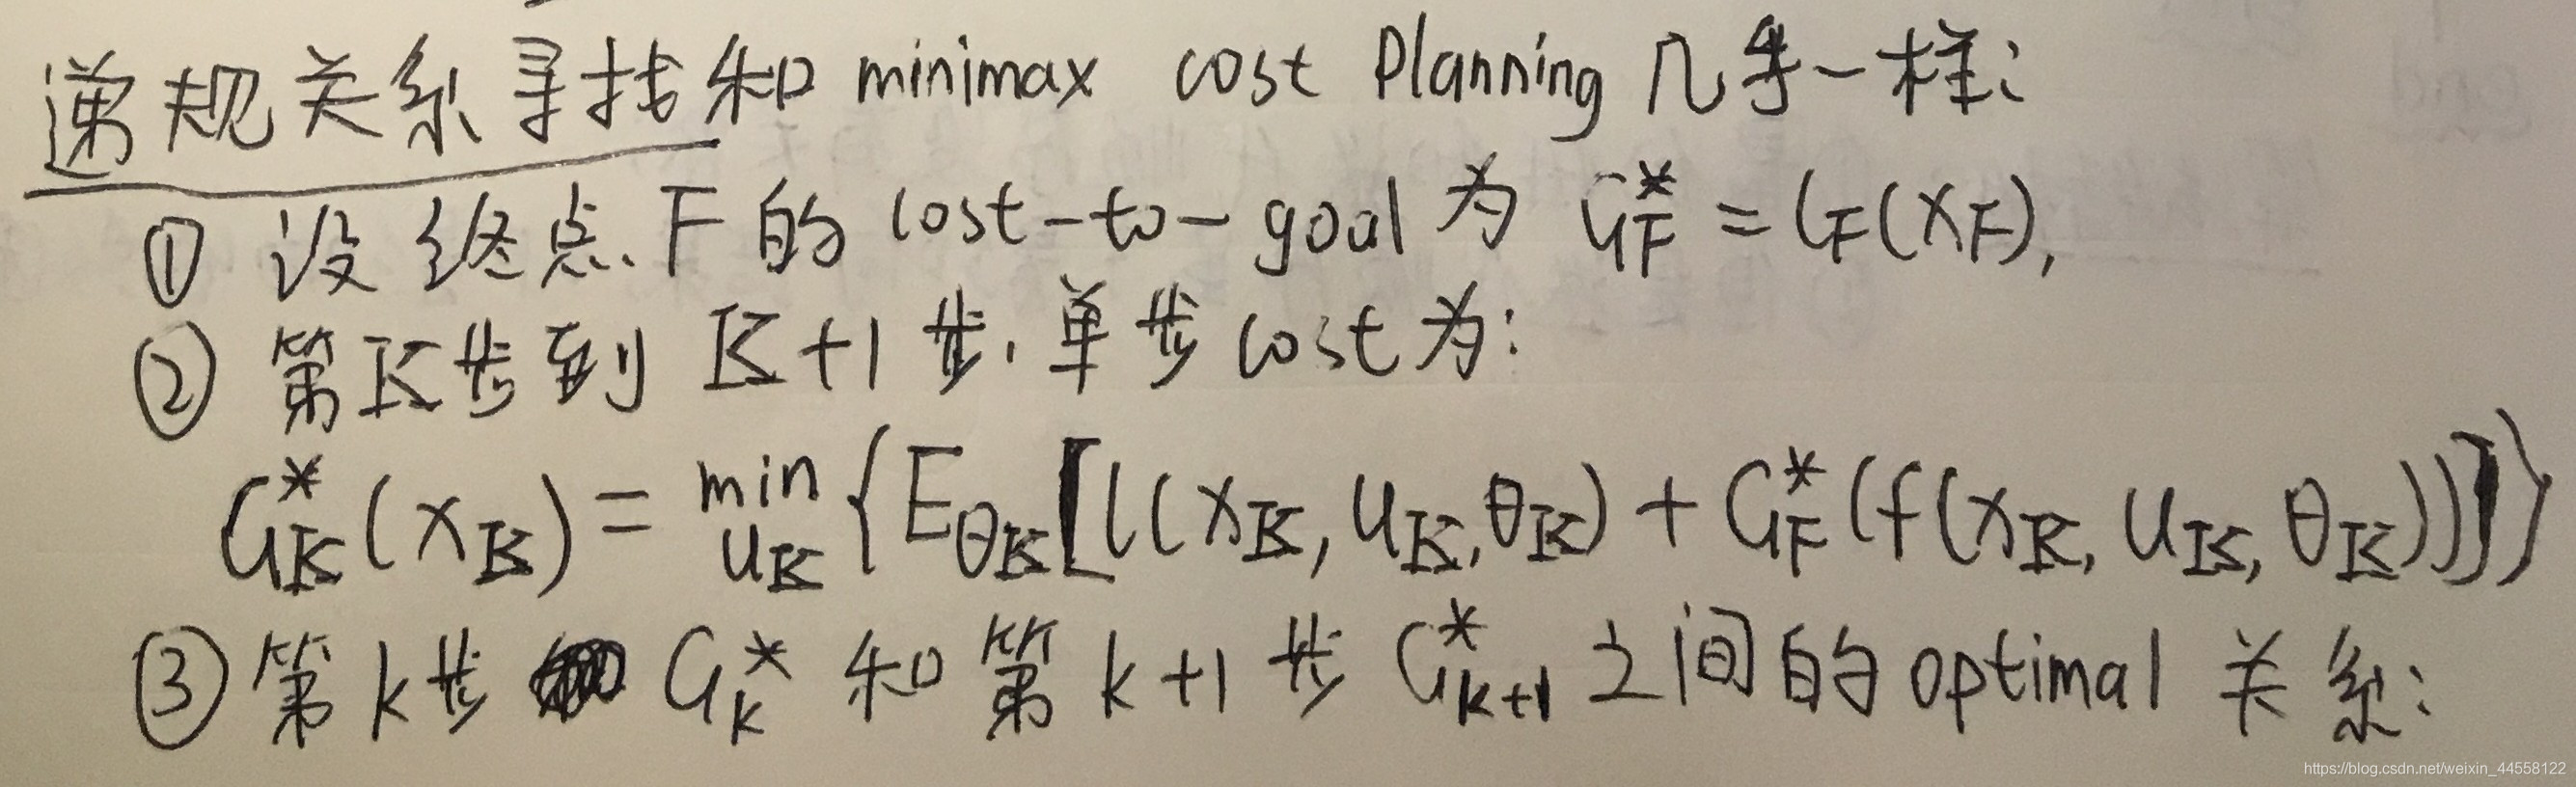 递规关系寻找和 minimax cost Planning 几乎一样:
① 设终点F的 cost-to-goal 为 G*_F = l_F(x_F),
② 第K步到K+1步,单步cost为:
G*_K(x_K) = min_{u_K} {E_{θ_K}[l(x_K, u_K, θ_K) + G*_F(f(x_K, u_K, θ_K))]}
③ 第k步 G*_k 和第k+1步 G*_{k+1} 之间的optimal关系:
https://blog.csdn.net/weixin_44558122